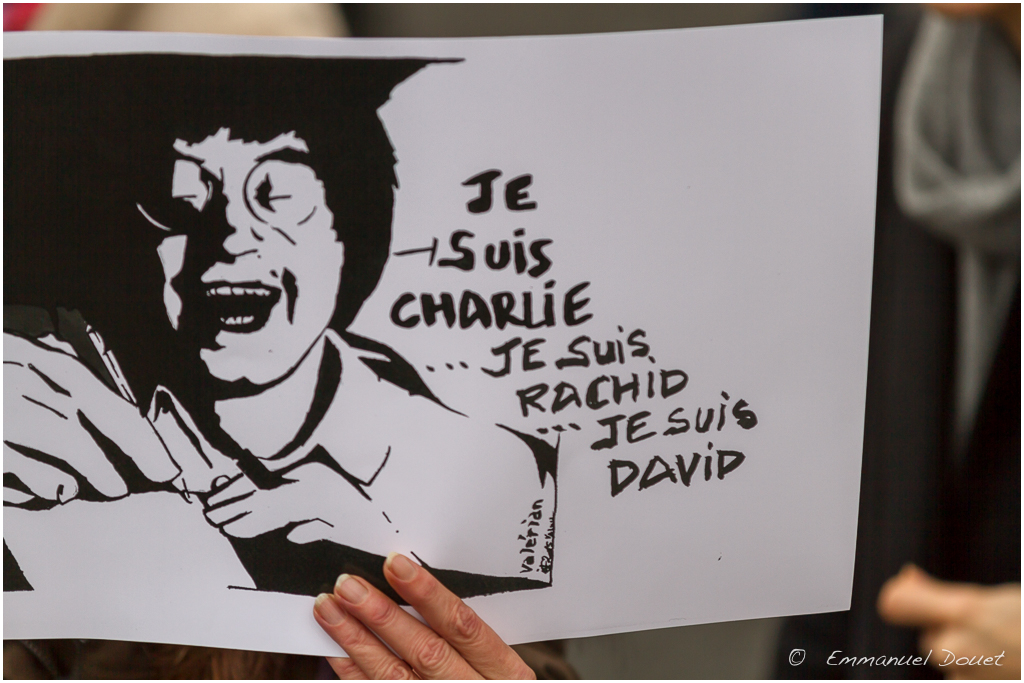 JE
SUiS
CHARLiE
... JE SUiS
RACHiD
... JE SUiS
DAViD
valérian
© Emmanuel Douet